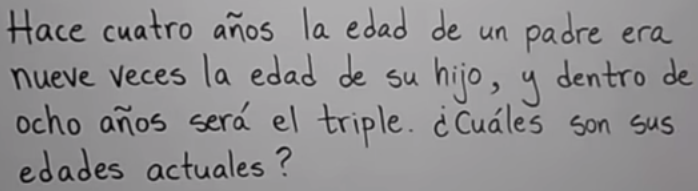 Hace cuatro años la edad de un padre era
nueve veces la edad de su hijo, y dentro de
ocho años será el triple. ¿Cuáles son sus
edades actuales?